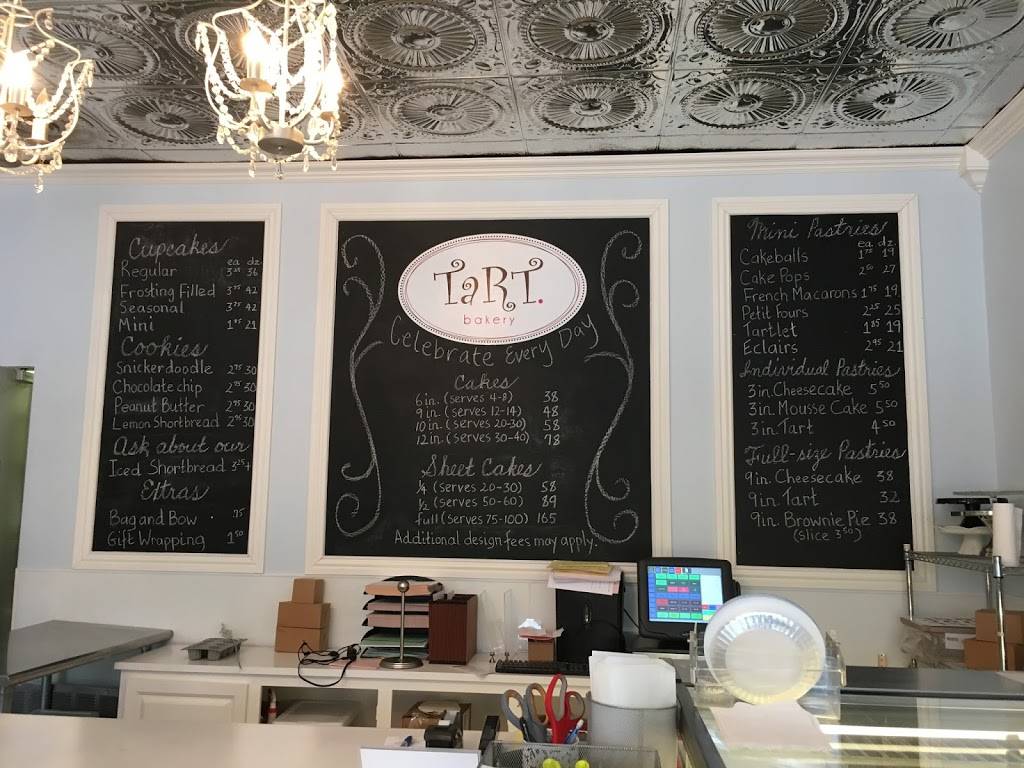 Cupcakes
ea dz.
Regular 36
Frosting Filled 3.75 42
Seasonal 3.75 42
Mini 21
Cookies
Snickerdoodle 2.75 30
Chocolate chip 2.75 30
Peanut Butter 2.75 30
Lemon Shortbread 30
Ask about our
Iced Shortbread 3.25+
Extras
Bag and Bow .75
Gift Wrapping 1.50
TaRT.
bakery
Celebrate Every Day
Cakes
6in. (serves 4-8) 38
9in. (serves 12-14) 48
10in. (serves 20-30) 58
12in. (serves 30-40) 78
Sheet Cakes
1/4 (serves 20-30) 58
1/2 (serves 50-60) 89
full (serves 75-100) 165
Additional design fees may apply.
Mini Pastries
ea dz.
Cakeballs 1.75 19
Cake Pops 2.50 27
French Macarons 1.75 19
Petit Fours 2.25 25
Tartlet 19
Eclairs 21
Individual Pastries
3in. Cheesecake 5.50
3in. Mousse Cake 5.50
3in. Tart 4.50
Full-size Pastries
9in. Cheesecake 38
9in. Tart 32
9in. Brownie Pie 38
(slice 3.50)